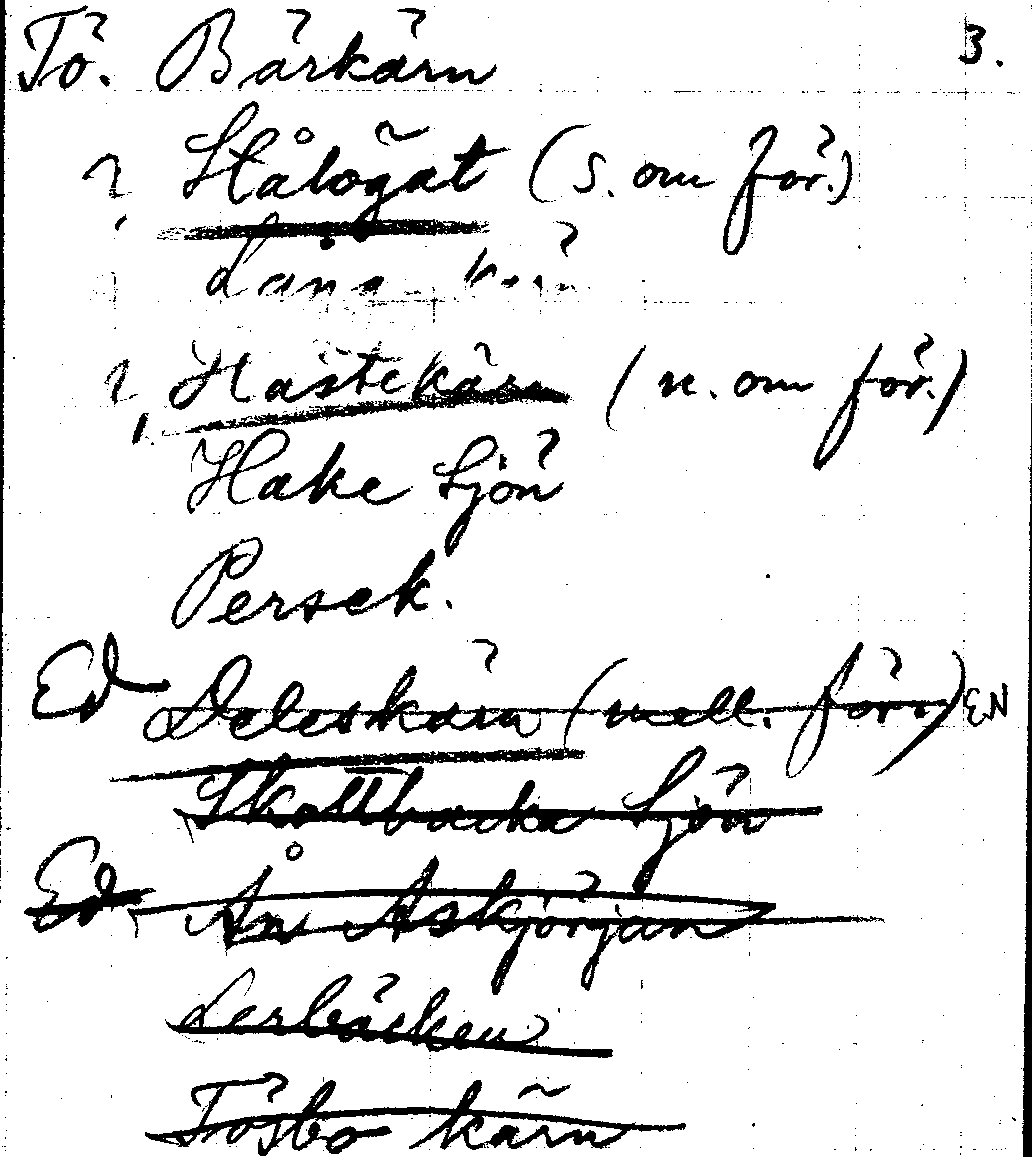 Tö. Bärkärn 3.
? Hålögat (S. om för.)
? Lång kärn
? Hästekärn (n. om för.)
Hake Sjön
Persek.
Ed Deleskärn (mell. för.) EN
Skottbacka Sjön
Ed Ån Askjörjan
Lerbäcken
Tösbo kärn